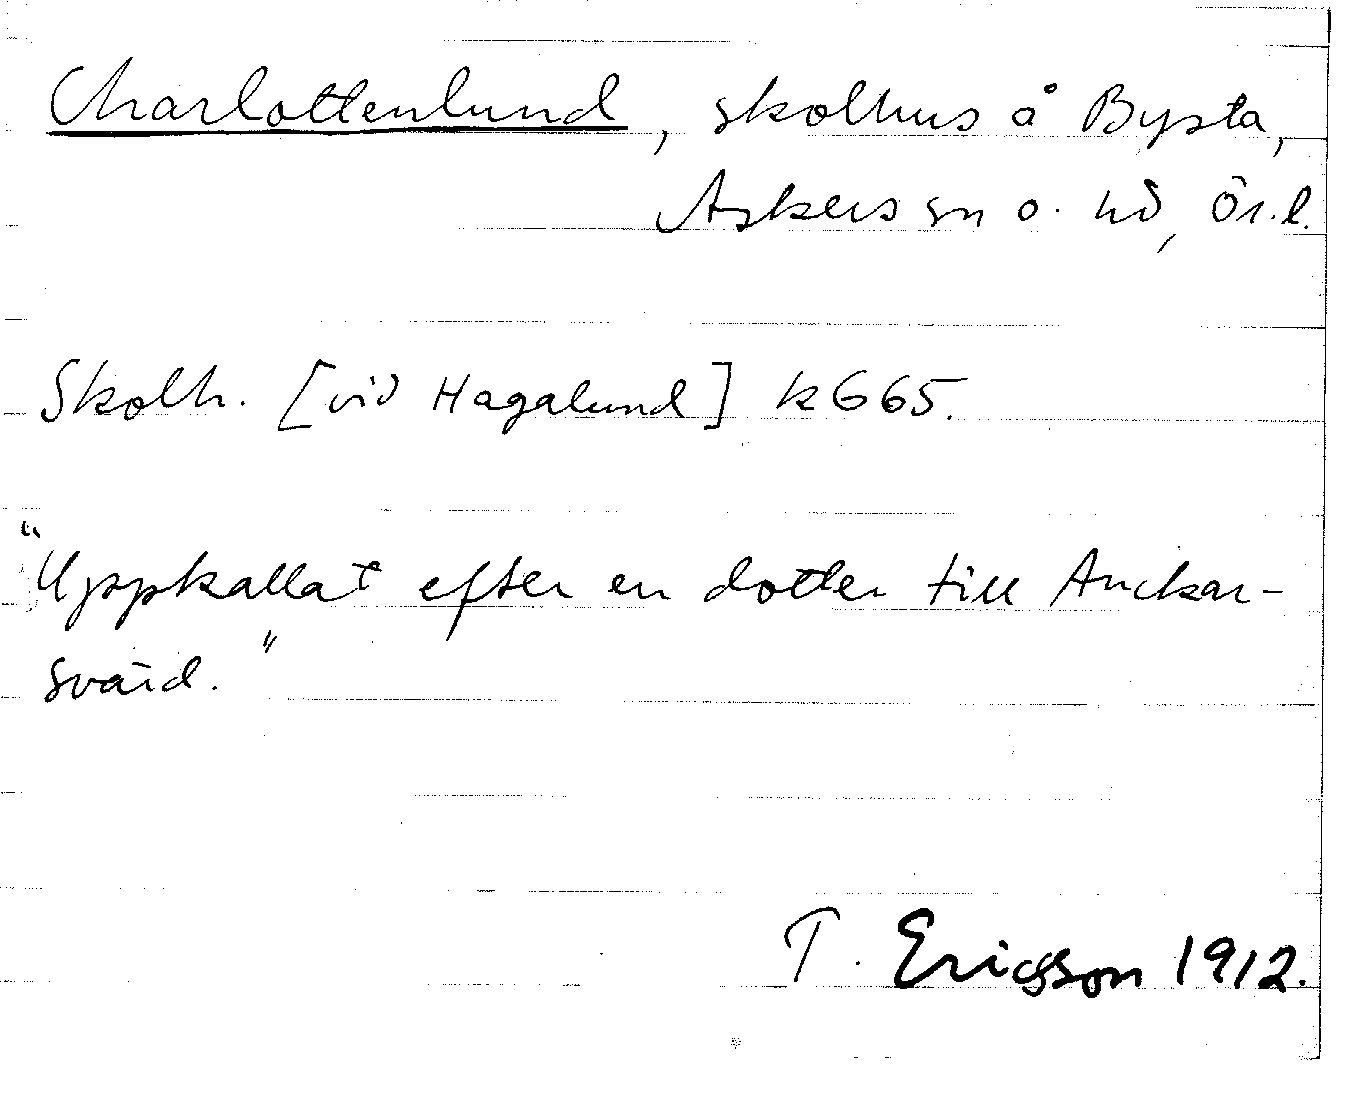 Charlottenlund, skolhus å Bysta,
Askers sn o. hd, Ör.l.
Skolh. [vid Hagalund] k G65.
"Uppkallat efter en dotter till Anckar-
svärd."
T. Ericsson 1912.